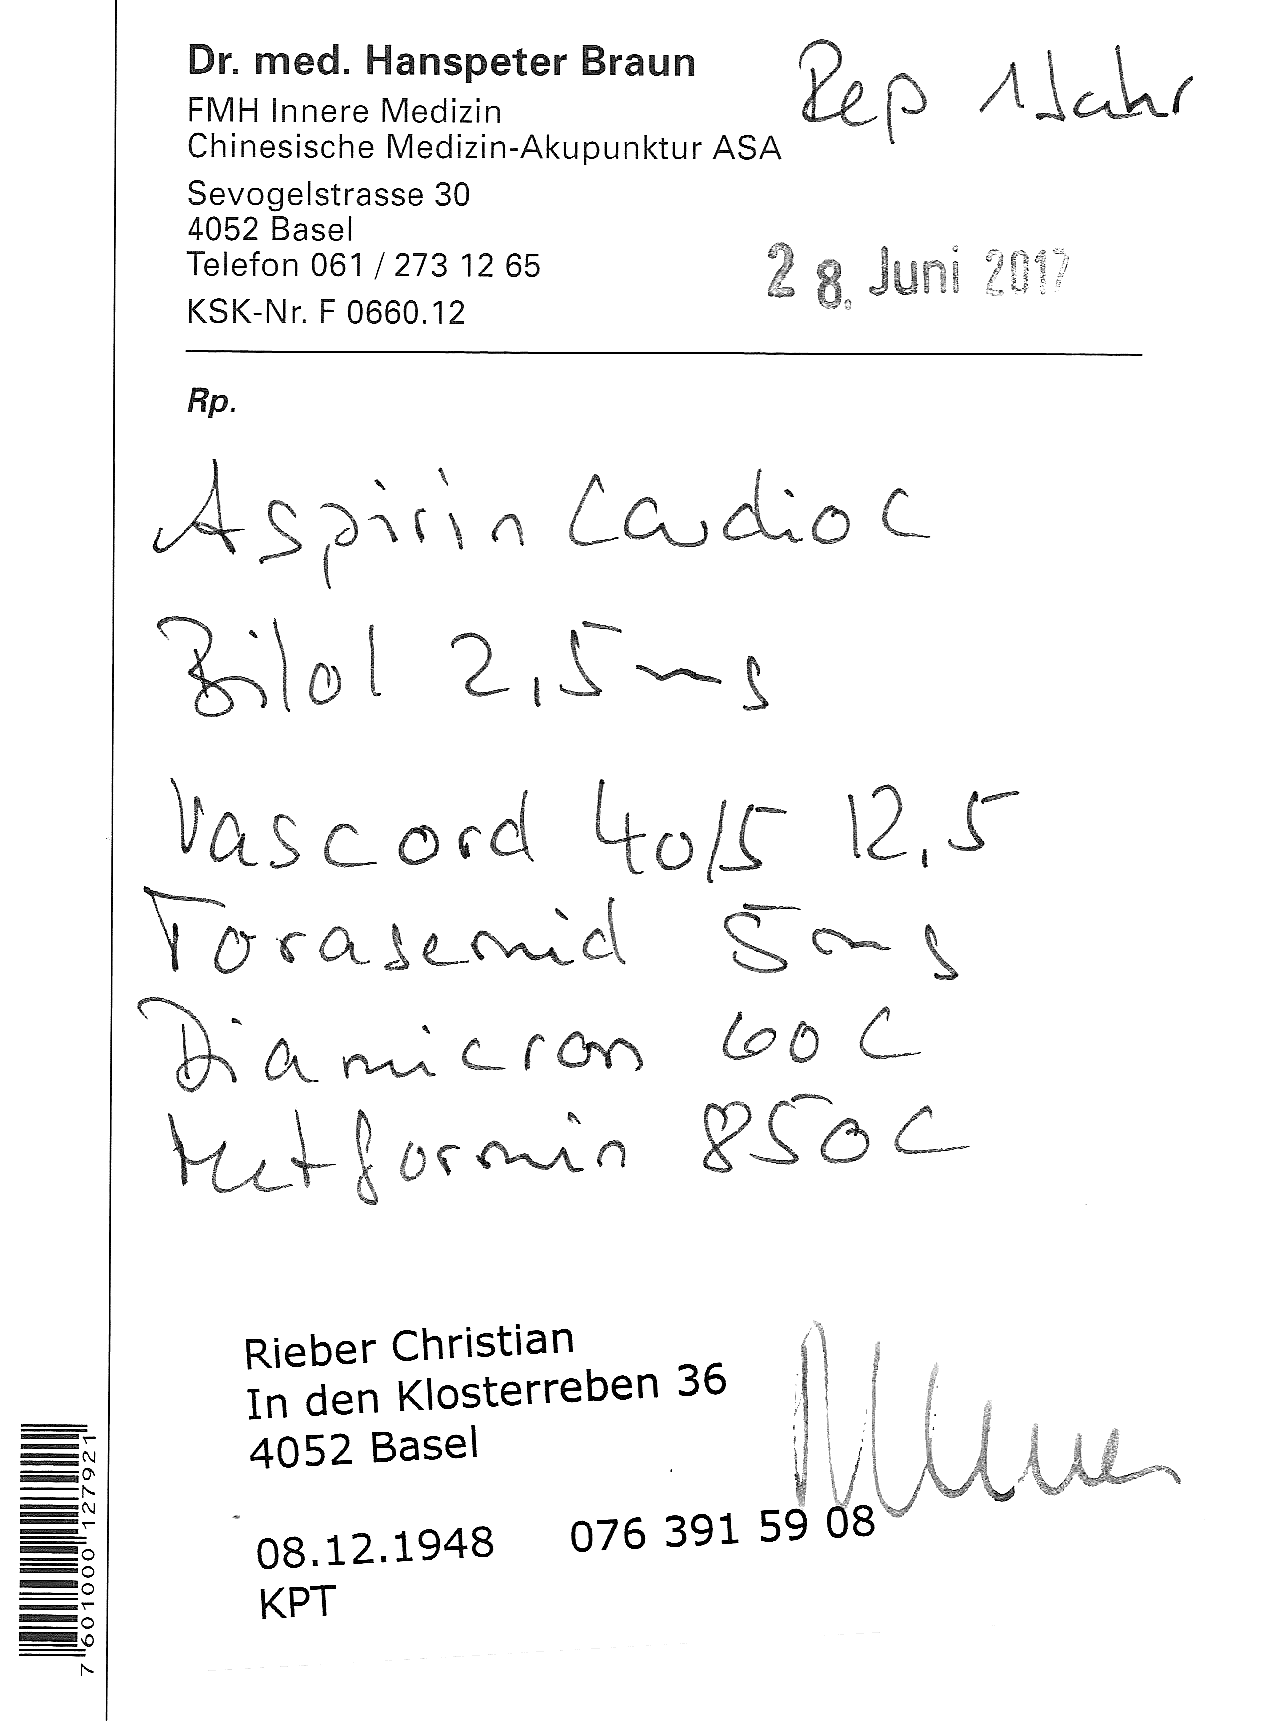 Dr. med. Hanspeter Braun
Rep 1 Jahr
FMH Innere Medizin
Chinesische Medizin-Akupunktur ASA
Sevogelstrasse 30
4052 Basel
Telefon 061 / 273 12 65
28. Juni 2017
KSK-Nr. F 0660.12
Rp.
Aspirin Cardio C
Bilol 2,5mg
Vascord 40/5 12,5
Torasemid 5mg
Diamicron 60 C
Metformin 850 C
Rieber Christian
In den Klosterreben 36
4052 Basel
08.12.1948 076 391 59 08
KPT
7 601000 127921